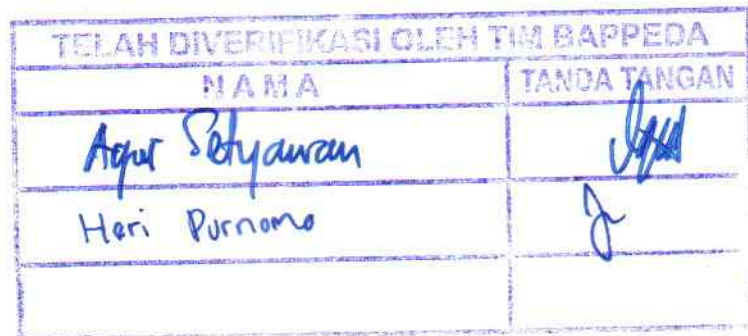 TELAH DIVERIFIKASI OLEH TIM BAPPEDA
NAMA TANDA TANGAN
Agus Setyawan
Heri Purnomo